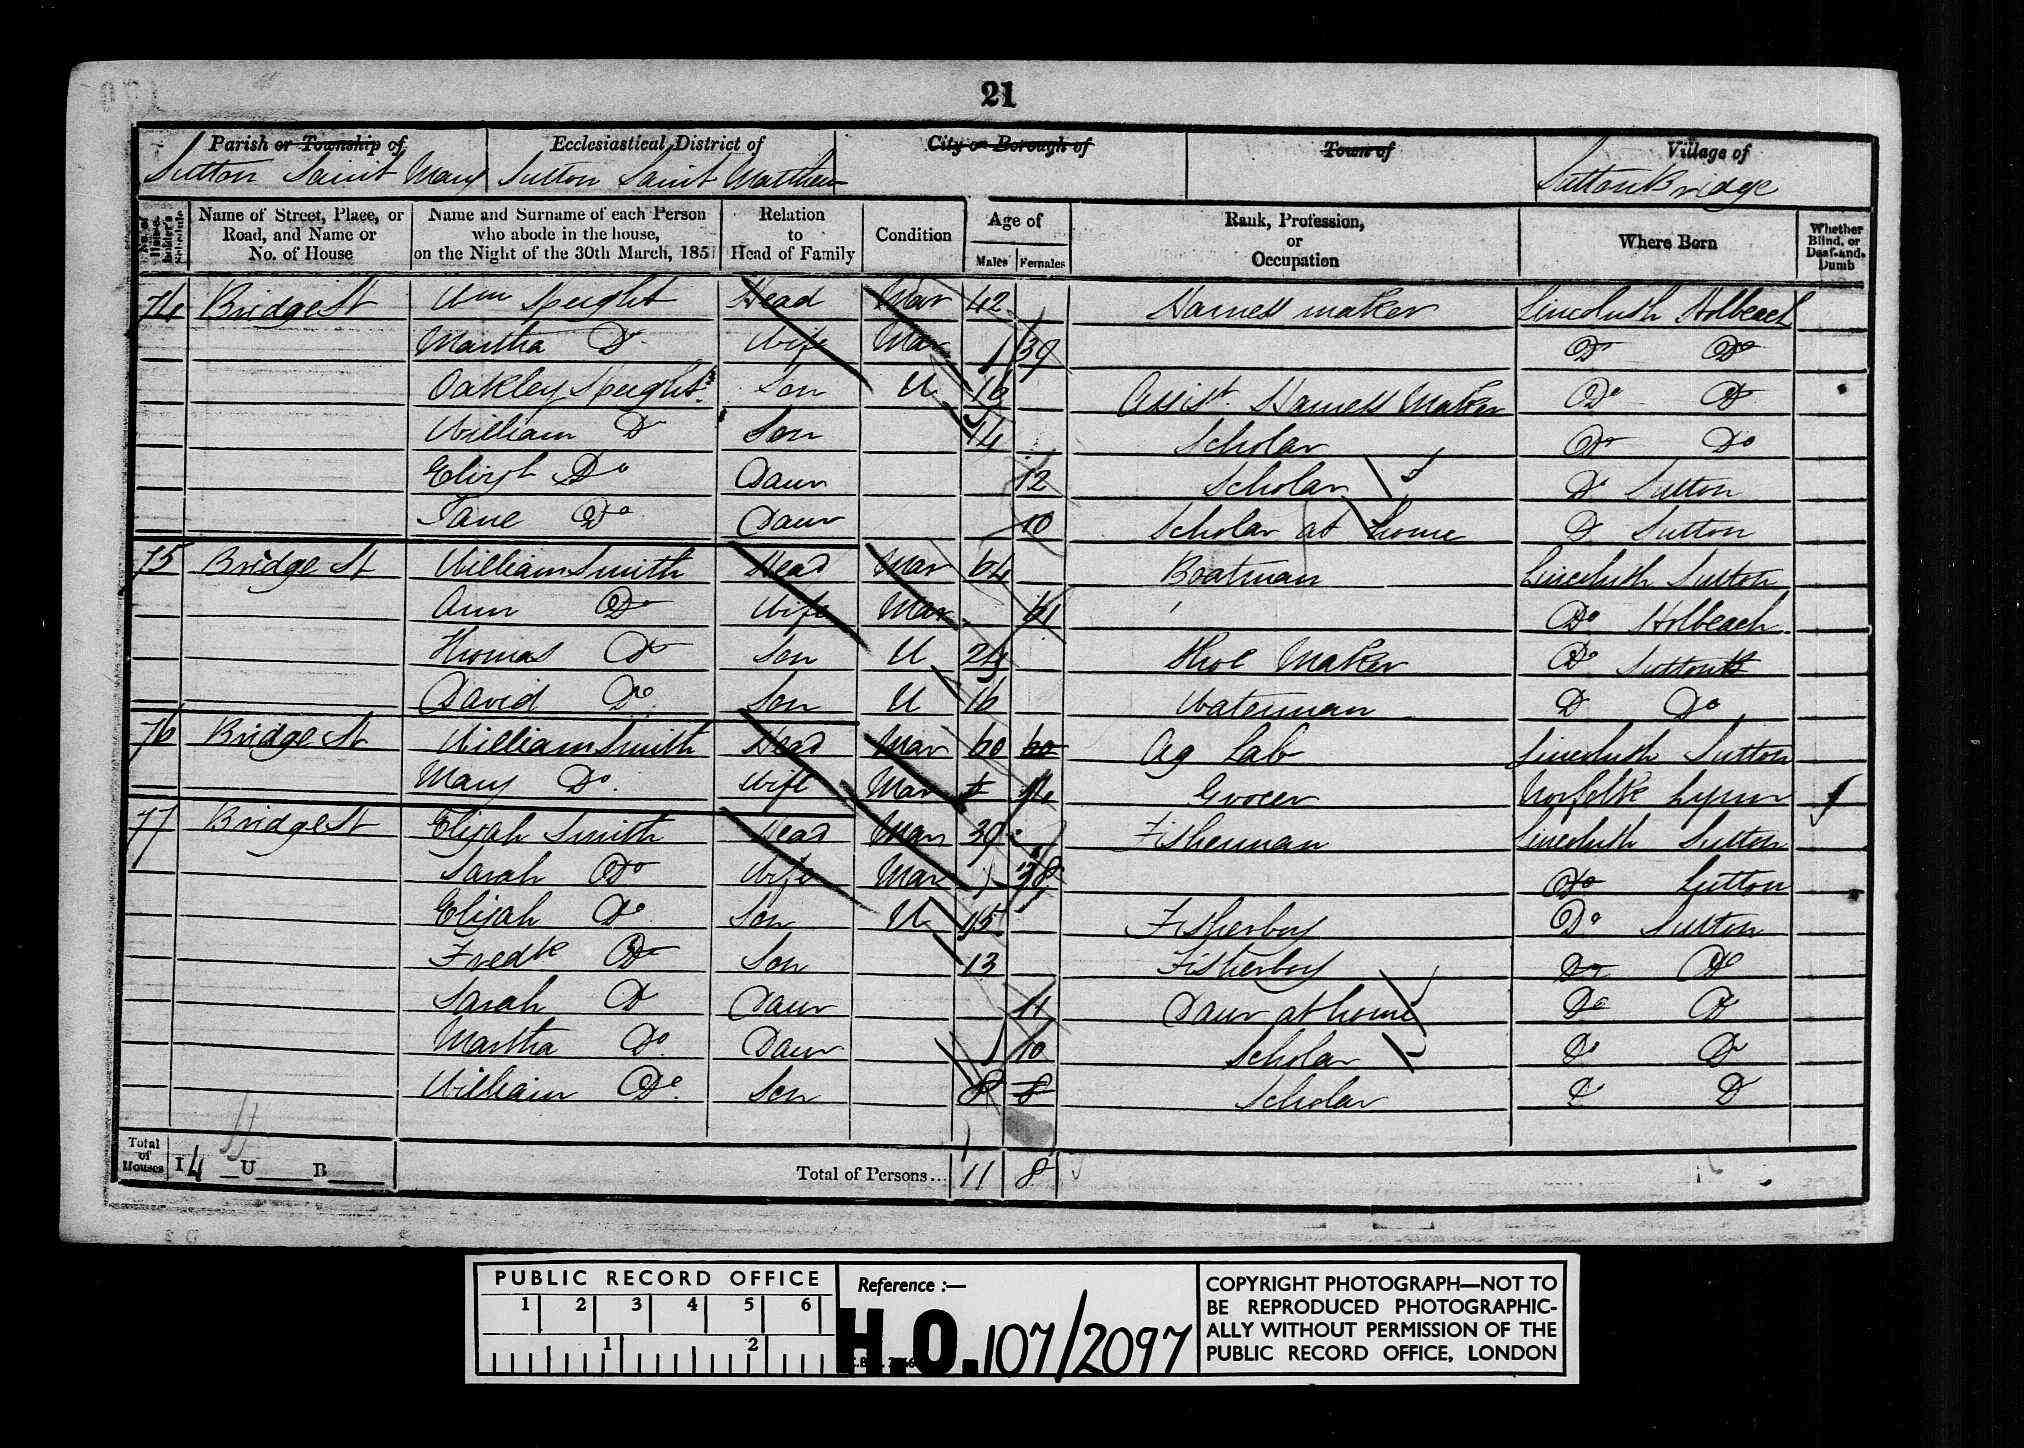 21
Parish or Township of Ecclesiastical District of City or Borough of Town of Village of
Sutton Saint Mary Sutton Saint Matthew Sutton Bridge
No. of Householder's Schedule
Name of Street, Place, or Road, and Name or No. of House
Name and Surname of each Person who abode in the house, on the Night of the 30th March, 1851
Relation to Head of Family
Condition
Age of
Males Females
Rank, Profession, or Occupation
Where Born
Whether Blind, or Deaf-and-Dumb
74 Bridge St Wm Speight Head Mar 42 Harness maker Lincolnsh Holbeach
Martha Do Wife Mar 39 Do Do
Oakley Speight Son U 16 Assist Harness Maker Do Do
William Do Son 14 Scholar Do Do
Elizh Do Daur 12 Scholar Do Sutton
Jane Do Daur 10 Scholar at home Do Sutton
75 Bridge St William Smith Head Mar 64 Boatman Lincolnsh Sutton
Ann Do Wife Mar 61 Do Holbeach
Thomas Do Son U 24 Shoe Maker Do Sutton
David Do Son U 16 Waterman Do Do
76 Bridge St William Smith Head Mar 60 60 Ag Lab Lincolnsh Sutton
Mary Do Wife Mar Grocer Norfolk Lynn
77 Bridge St Elijah Smith Head Mar 39 Fisherman Lincolnsh Sutton
Sarah Do Wife Mar 38 Do Lutton
Elijah Do Son U 15 Fisherboy Do Sutton
Fredk Do Son 13 Fisherboy Do Do
Sarah Do Daur 11 Daur at home Do Do
Martha Do Daur 10 Scholar Do Do
William Do Son 8 8 Scholar Do Do
Total of Houses I 4 U B Total of Persons... 11 8
PUBLIC RECORD OFFICE
1 2 3 4 5 6
1 2
Reference :—
H.O. 107/2097
COPYRIGHT PHOTOGRAPH—NOT TO
BE REPRODUCED PHOTOGRAPHIC-
ALLY WITHOUT PERMISSION OF THE
PUBLIC RECORD OFFICE, LONDON